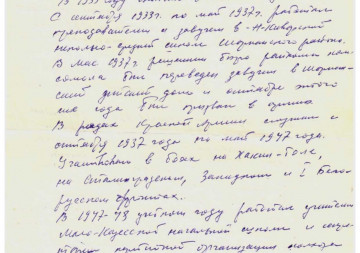 С сентября 1933г. по май 1937г. работал
преподавателем и завучем в -
средней школе района.
В мае 1937г. решением бюро райкома ком-
сомола был переведен завучем в
ский детский дом и в октябре этого
же года был призван в армию.
В рядах Красной Армии служил с
октября 1937 года по май 1947 года.
Участвовал в боях на Халхин-Голе,
на Сталинградском, Западном и I Бело-
русском фронтах.
В 1947-48 учебном году работал учителем
начальной школы и
партийной организации колхоза